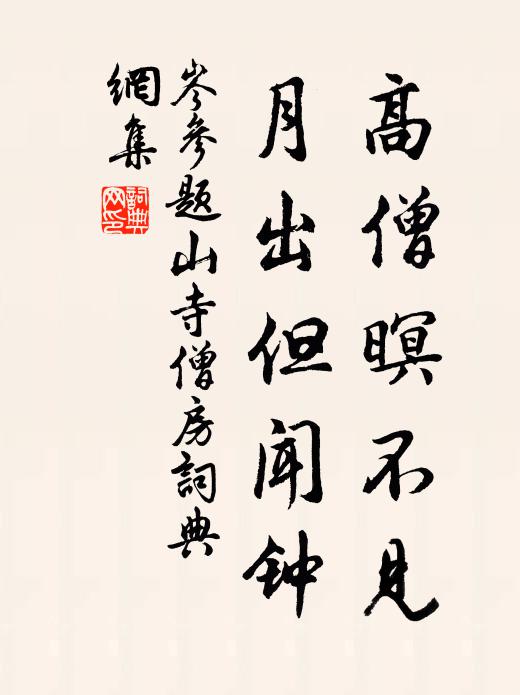 高僧暝不见
月出但闻钟
岑參题山寺僧房詞典
網集
詞典
网印